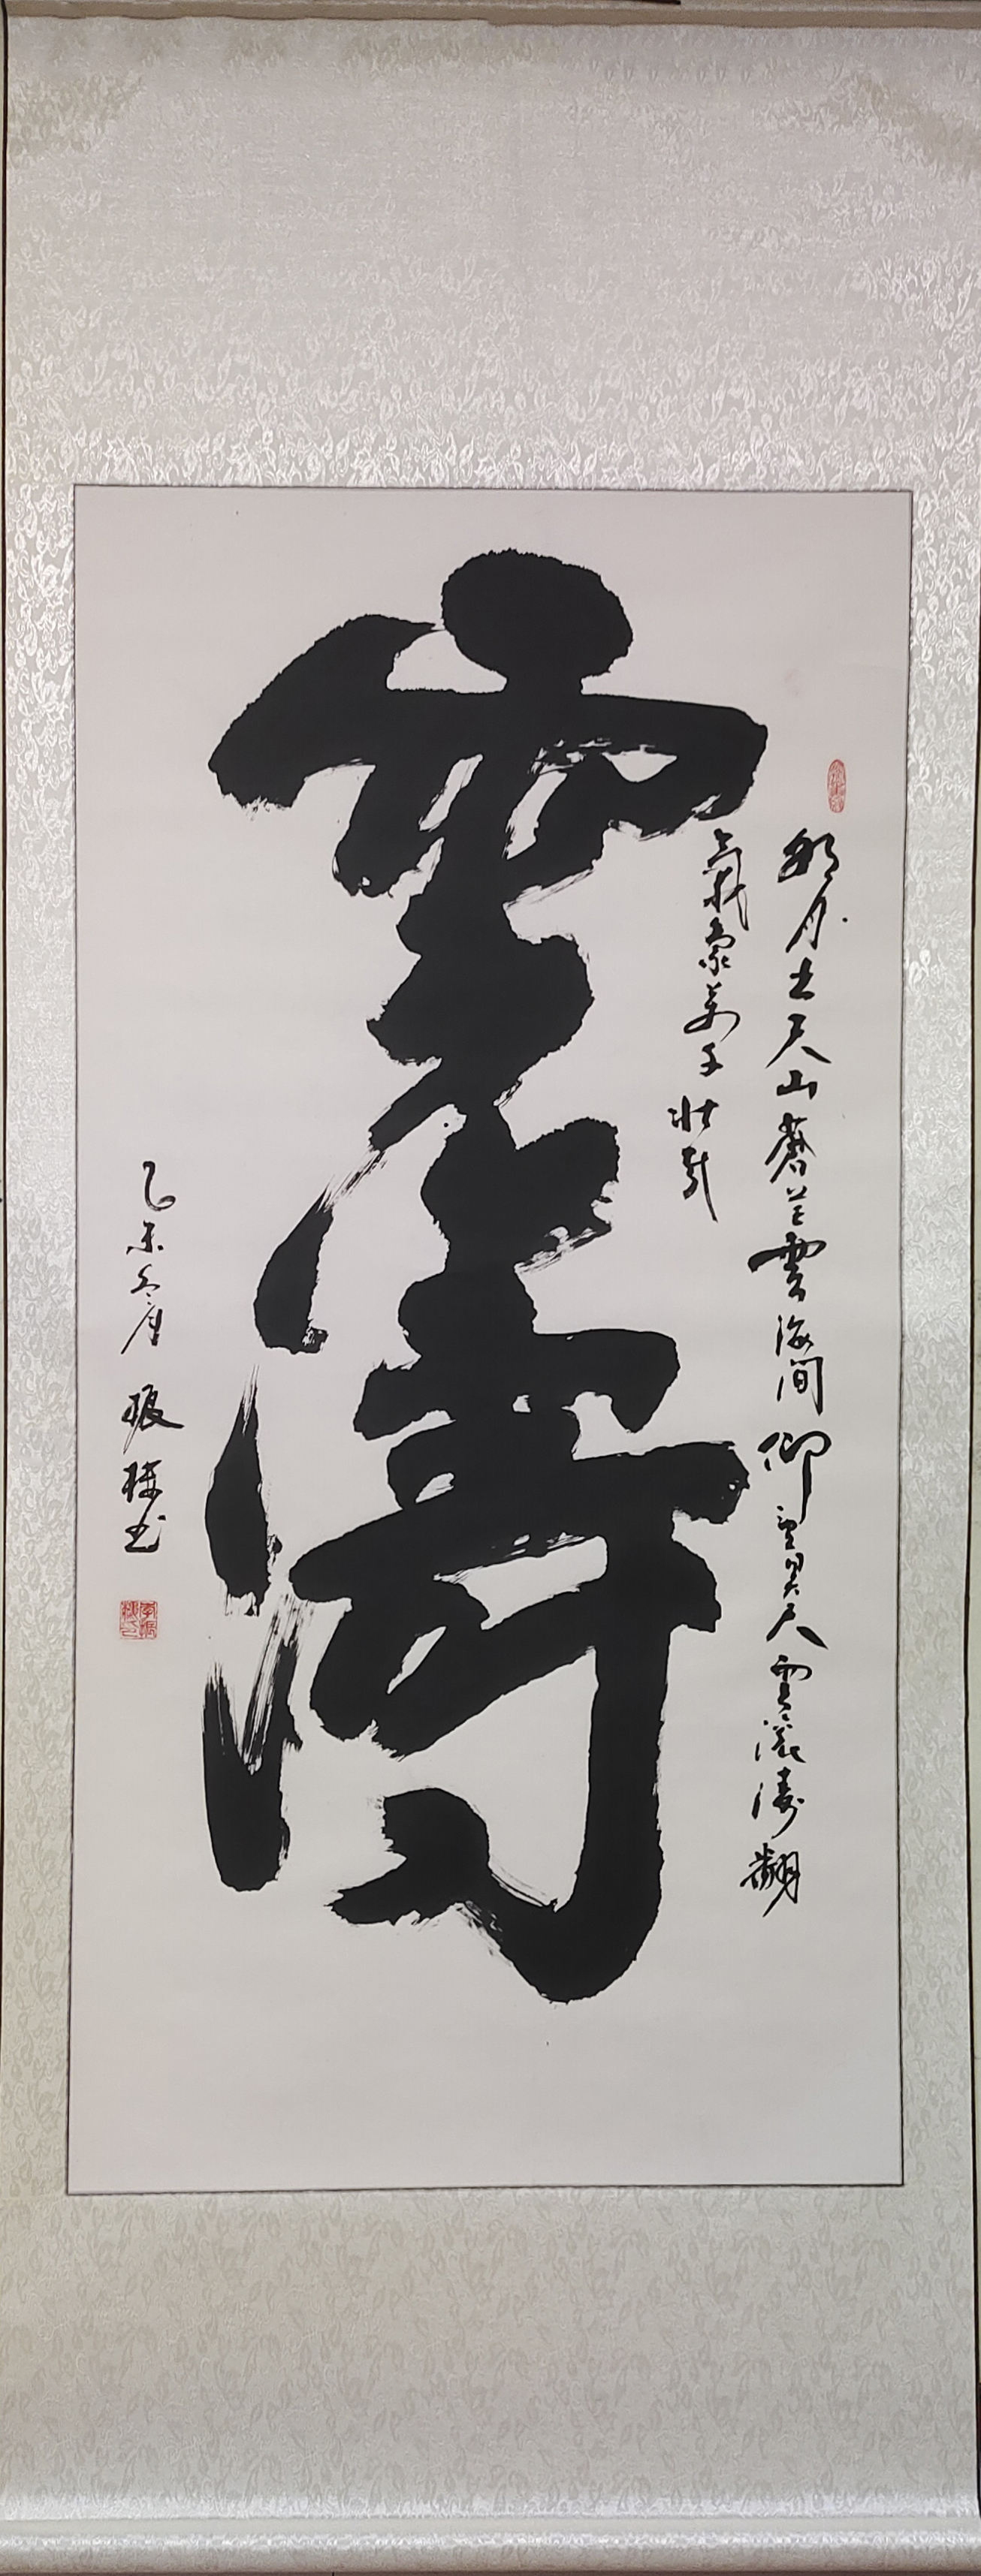 明月出天山蒼茫雲海間仰望昊天雲滾濤翻
氣象萬千壯哉
雲濤
乙未 振書